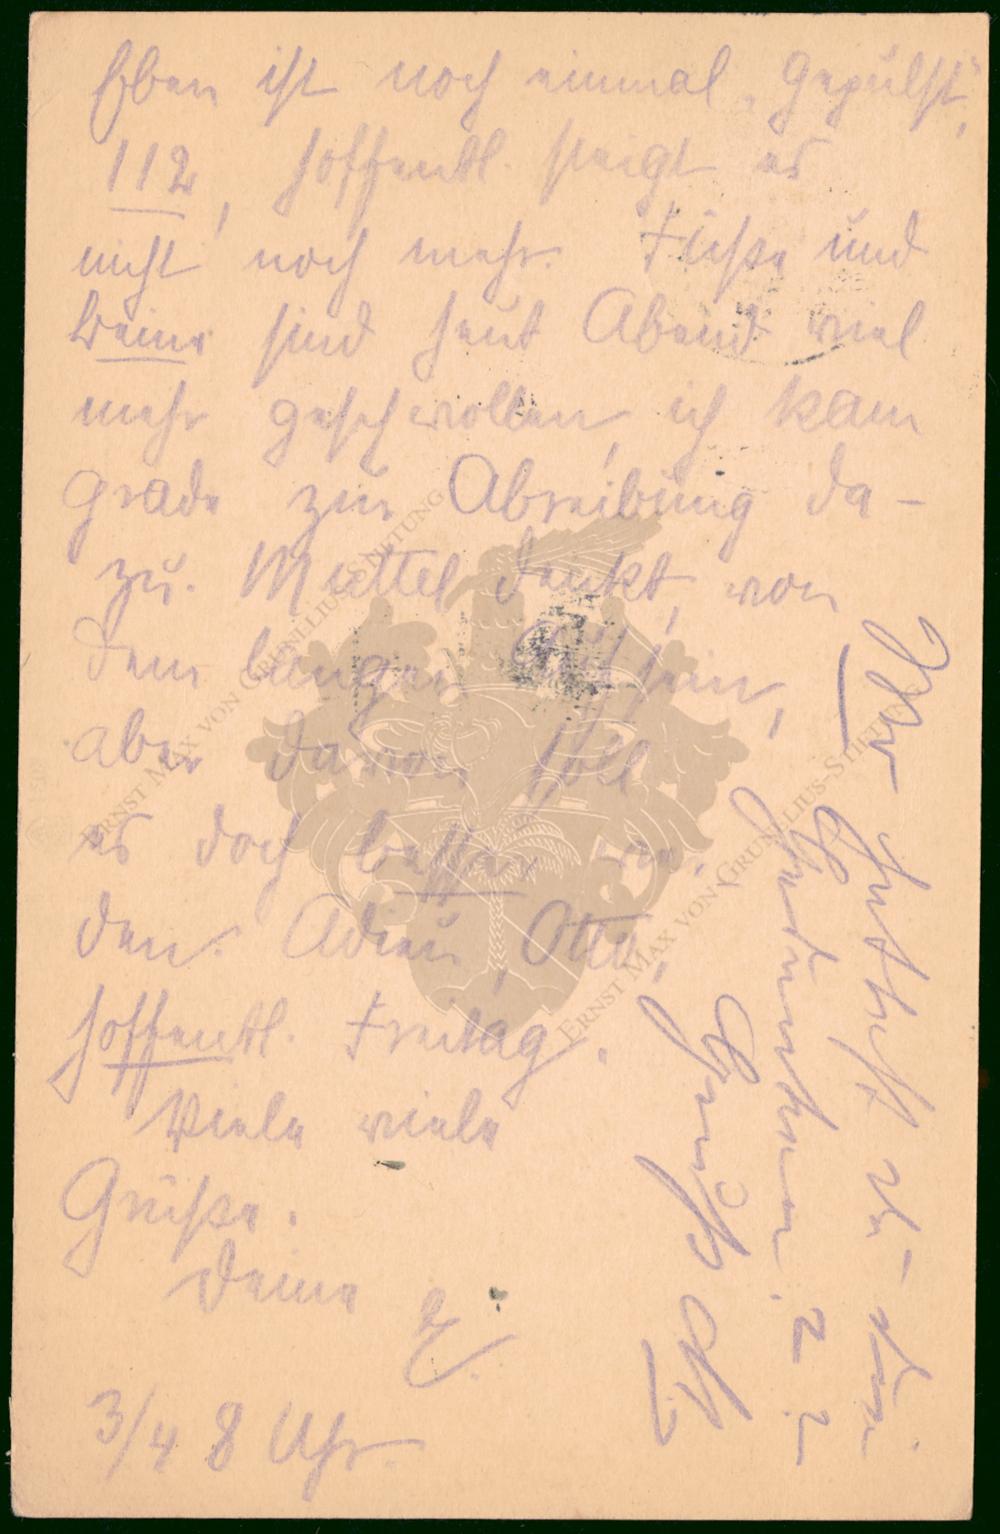 Eben ist noch einmal „gepulst“,
112, hoffentl. steigt es
nicht noch mehr. Füße und
Beine sind heut Abend viel
mehr geschwollen, ich kam
grade zur Abreibung da-
zu. Muttel denkt, von
dem langen Aufsein,
aber davon soll
es doch besser wer-
den. Adieu, Otto,
hoffentl. Freitag.
Viele viele
Grüße.
Deine
E.
3/4 8 Uhr.
Gruß
ERNST MAX VON GRUNELIUS-STIFTUNG
ERNST MAX VON GRUNELIUS-STIFTUNG